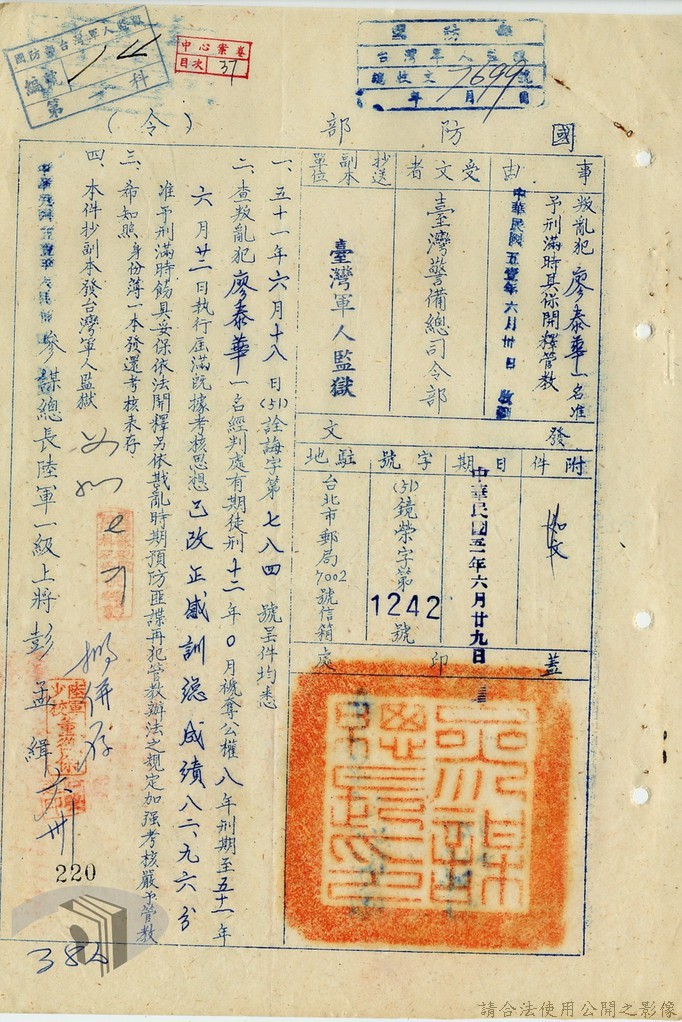 國防部台灣軍人監獄
編號
第 科
中心業卷
目次 37
國防部
台灣軍人監獄
總收文 7699 號
年 月 日
國防部
(令)
事由
叛亂犯廖泰華一名准
予刑滿時具保開釋管教
中華民國五壹年六月卅日
受文者
臺灣警備總司令部
抄送
副本
單位
臺灣軍人監獄
發文
附件
如文
日期
中華民國五一年六月廿九日
字號
(51)鏡榮字第1242號
駐地
台北市郵局7002號信箱
蓋印處
一、五十一年六月十八日(51)詮誨字第七八四號呈件均悉
二、查叛亂犯廖泰華一名經判處有期徒刑十二年0月褫奪公權八年刑期至五十一年
六月廿二日執行屆滿既據考核思想已改正感訓總成績八二、九六分
准予刑滿時飭具妥保依法開釋另依戡亂時期預防匪諜再犯管教辦法之規定加强考核嚴予管教
三、希如照身份簿一本發還考核表存
四、本件抄副本發台灣軍人監獄
參謀總長陸軍一級上將彭孟緝
擬併存
220
382
請合法使用公開之影像